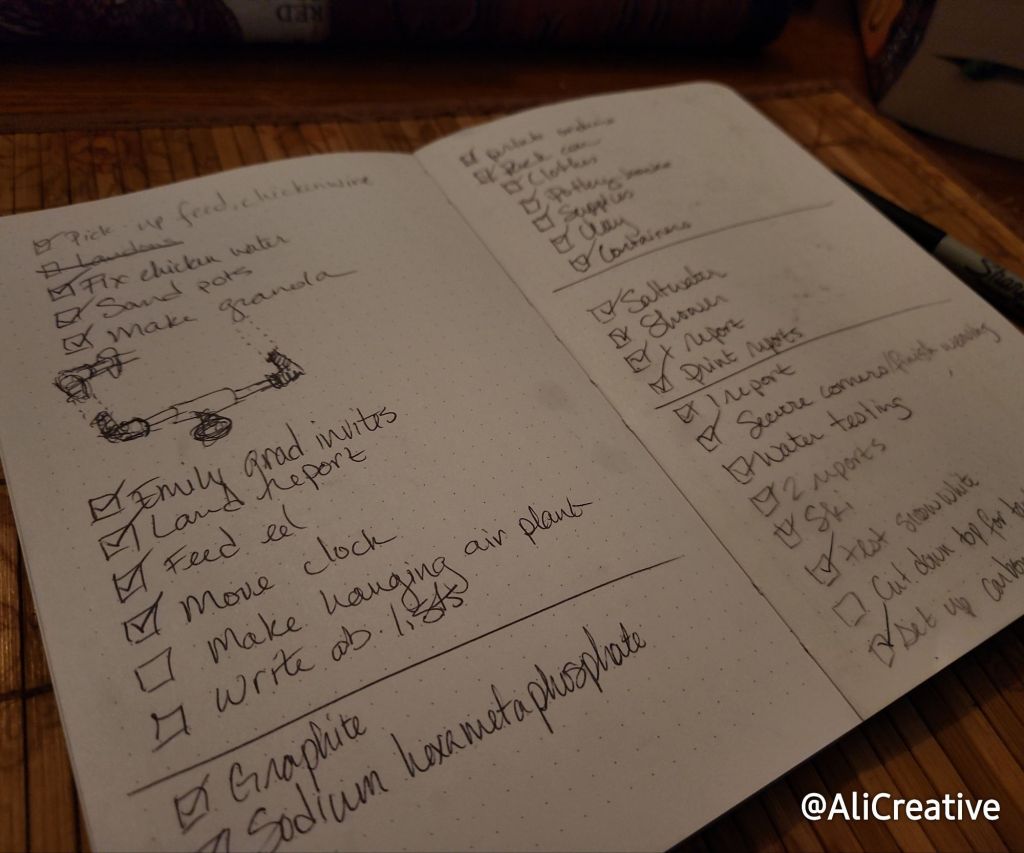 RED
Pick up feed, chickenwire
Laundry
Fix chicken water
Sand pots
Make granola
Emily grad invites
Land report
Feed eel
Move clock
Make hanging air plant
Write ab. lists
Graphite
Sodium hexametaphosphate
Clothes
Supplies
Clay
Containers
Saltwater
Shower
1 report
Print reports
1 report
Secure corners/finish weaving
Water testing
2 reports
Ski
Test snow white
Cut down top for
Set up
Sharp
@AliCreative